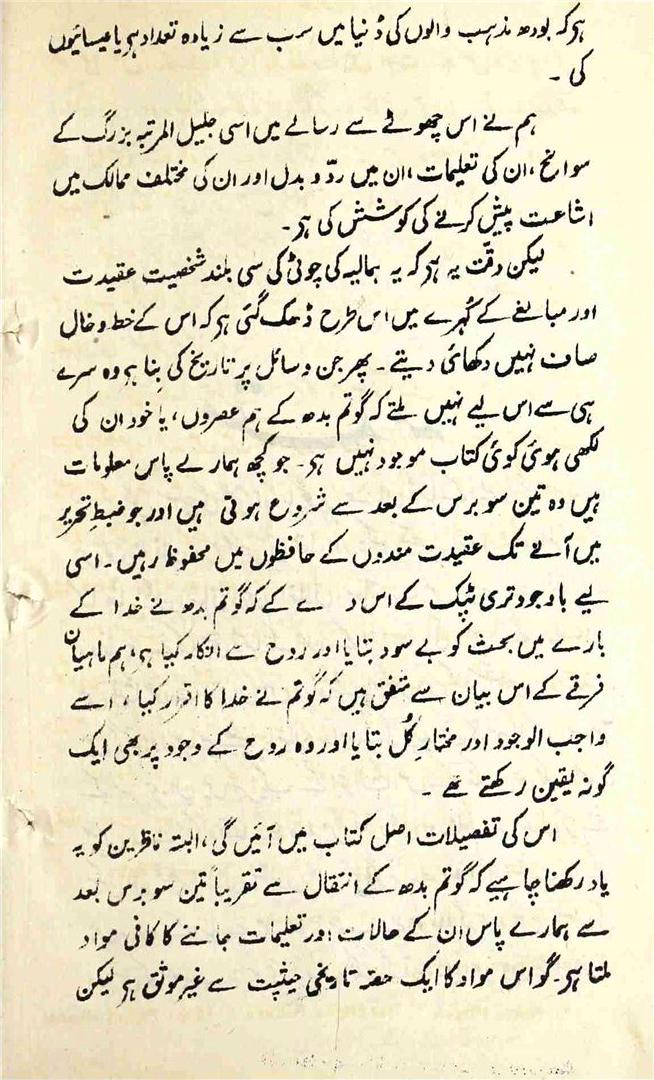 ہر کہ بودھ مذہب والوں کی دُنیا میں سب سے زیادہ تعداد ہر یا عیسائیوں
کی ۔
ہم نے اس چھوٹے سے رسالے میں اسی جلیل المرتبہ بزرگ کے
سوانح، ان کی تعلیمات، ان میں ردّ و بدل اور ان کی مختلف ممالک میں
اشاعت پیش کرنے کی کوشش کی ہر۔
لیکن دقّت یہ ہر کہ یہ ہمالیہ کی چوٹی کی سی بلند شخصیت عقیدت
اور مبالغے کے کُہرے میں اس طرح ڈھک گئی ہر کہ اس کے خط و خال
صاف نہیں دکھائی دیتے ۔ پھر جن وسائل پر تاریخ کی بِنا ہر وہ سرے
ہی سے اس لیے نہیں ملتے کہ گوتم بدھ کے ہم عصروں، یا خود ان کی
لکھی ہوئی کوئی کتاب موجود نہیں ہر۔ جو کچھ ہمارے پاس معلومات
ہیں وہ تین سو برس کے بعد سے شروع ہوتی ہیں اور جو ضبطِ تحریر
میں آنے تک عقیدت مندوں کے حافظوں میں محفوظ رہیں ۔ اسی
لیے باوجود تری پٹک کے اس کے کہ گوتم بدھ نے خدا کے
بارے میں بحث کو بے سود بتایا اور روح سے انکار کیا ہر، ہم ماہیان
فرقے کے اس بیان سے متفق ہیں کہ گوتم نے خدا کا اقرار کیا، اسے
واجب الوجود اور مختارِ کُل بتایا اور وہ روح کے وجود پر بھی ایک
گونہ یقین رکھتے تھے ۔
اس کی تفصیلات اصل کتاب میں آئیں گی، البتہ ناظرین کو یہ
یاد رکھنا چاہیے کہ گوتم بدھ کے انتقال سے تقریباً تین سو برس بعد
سے ہمارے پاس ان کے حالات اور تعلیمات جاننے کا کافی مواد
ملتا ہر۔ گو اس مواد کا ایک حصّہ تاریخی حیثیت سے غیر موثق ہر لیکن